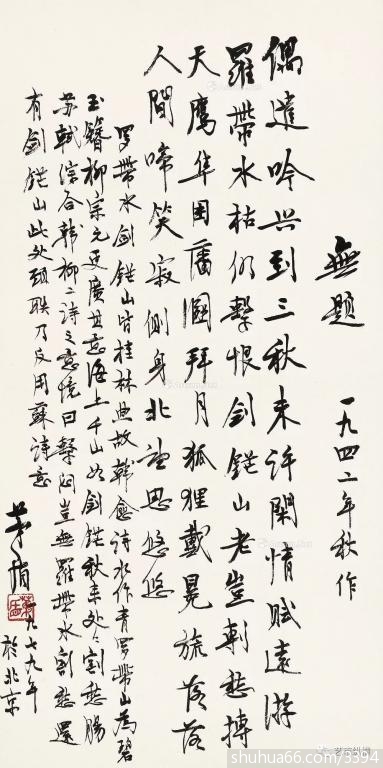 無題
一九四二年秋作
偶遣吟興到三秋未許閑情賦遠游
羅帶水枯仍繫恨劍鋩山老豈剸愁搏
天鷹隼困藩溷拜月狐狸戴冕旒落落
人間啼笑寂側身北望思悠悠
罗帶水劍鋩山皆桂林典故韓愈詩水作青罗帶山為碧
玉簪柳宗元更廣其意海上千山如劍鋩秋来处々割愁腸
苏軾综合韩柳二诗之意境曰繫悶豈無羅帶水割愁還
有劍鋩山此处頸联乃反用蘇詩意
茅盾
一九七九年
於北京
shuhua66.com/3394